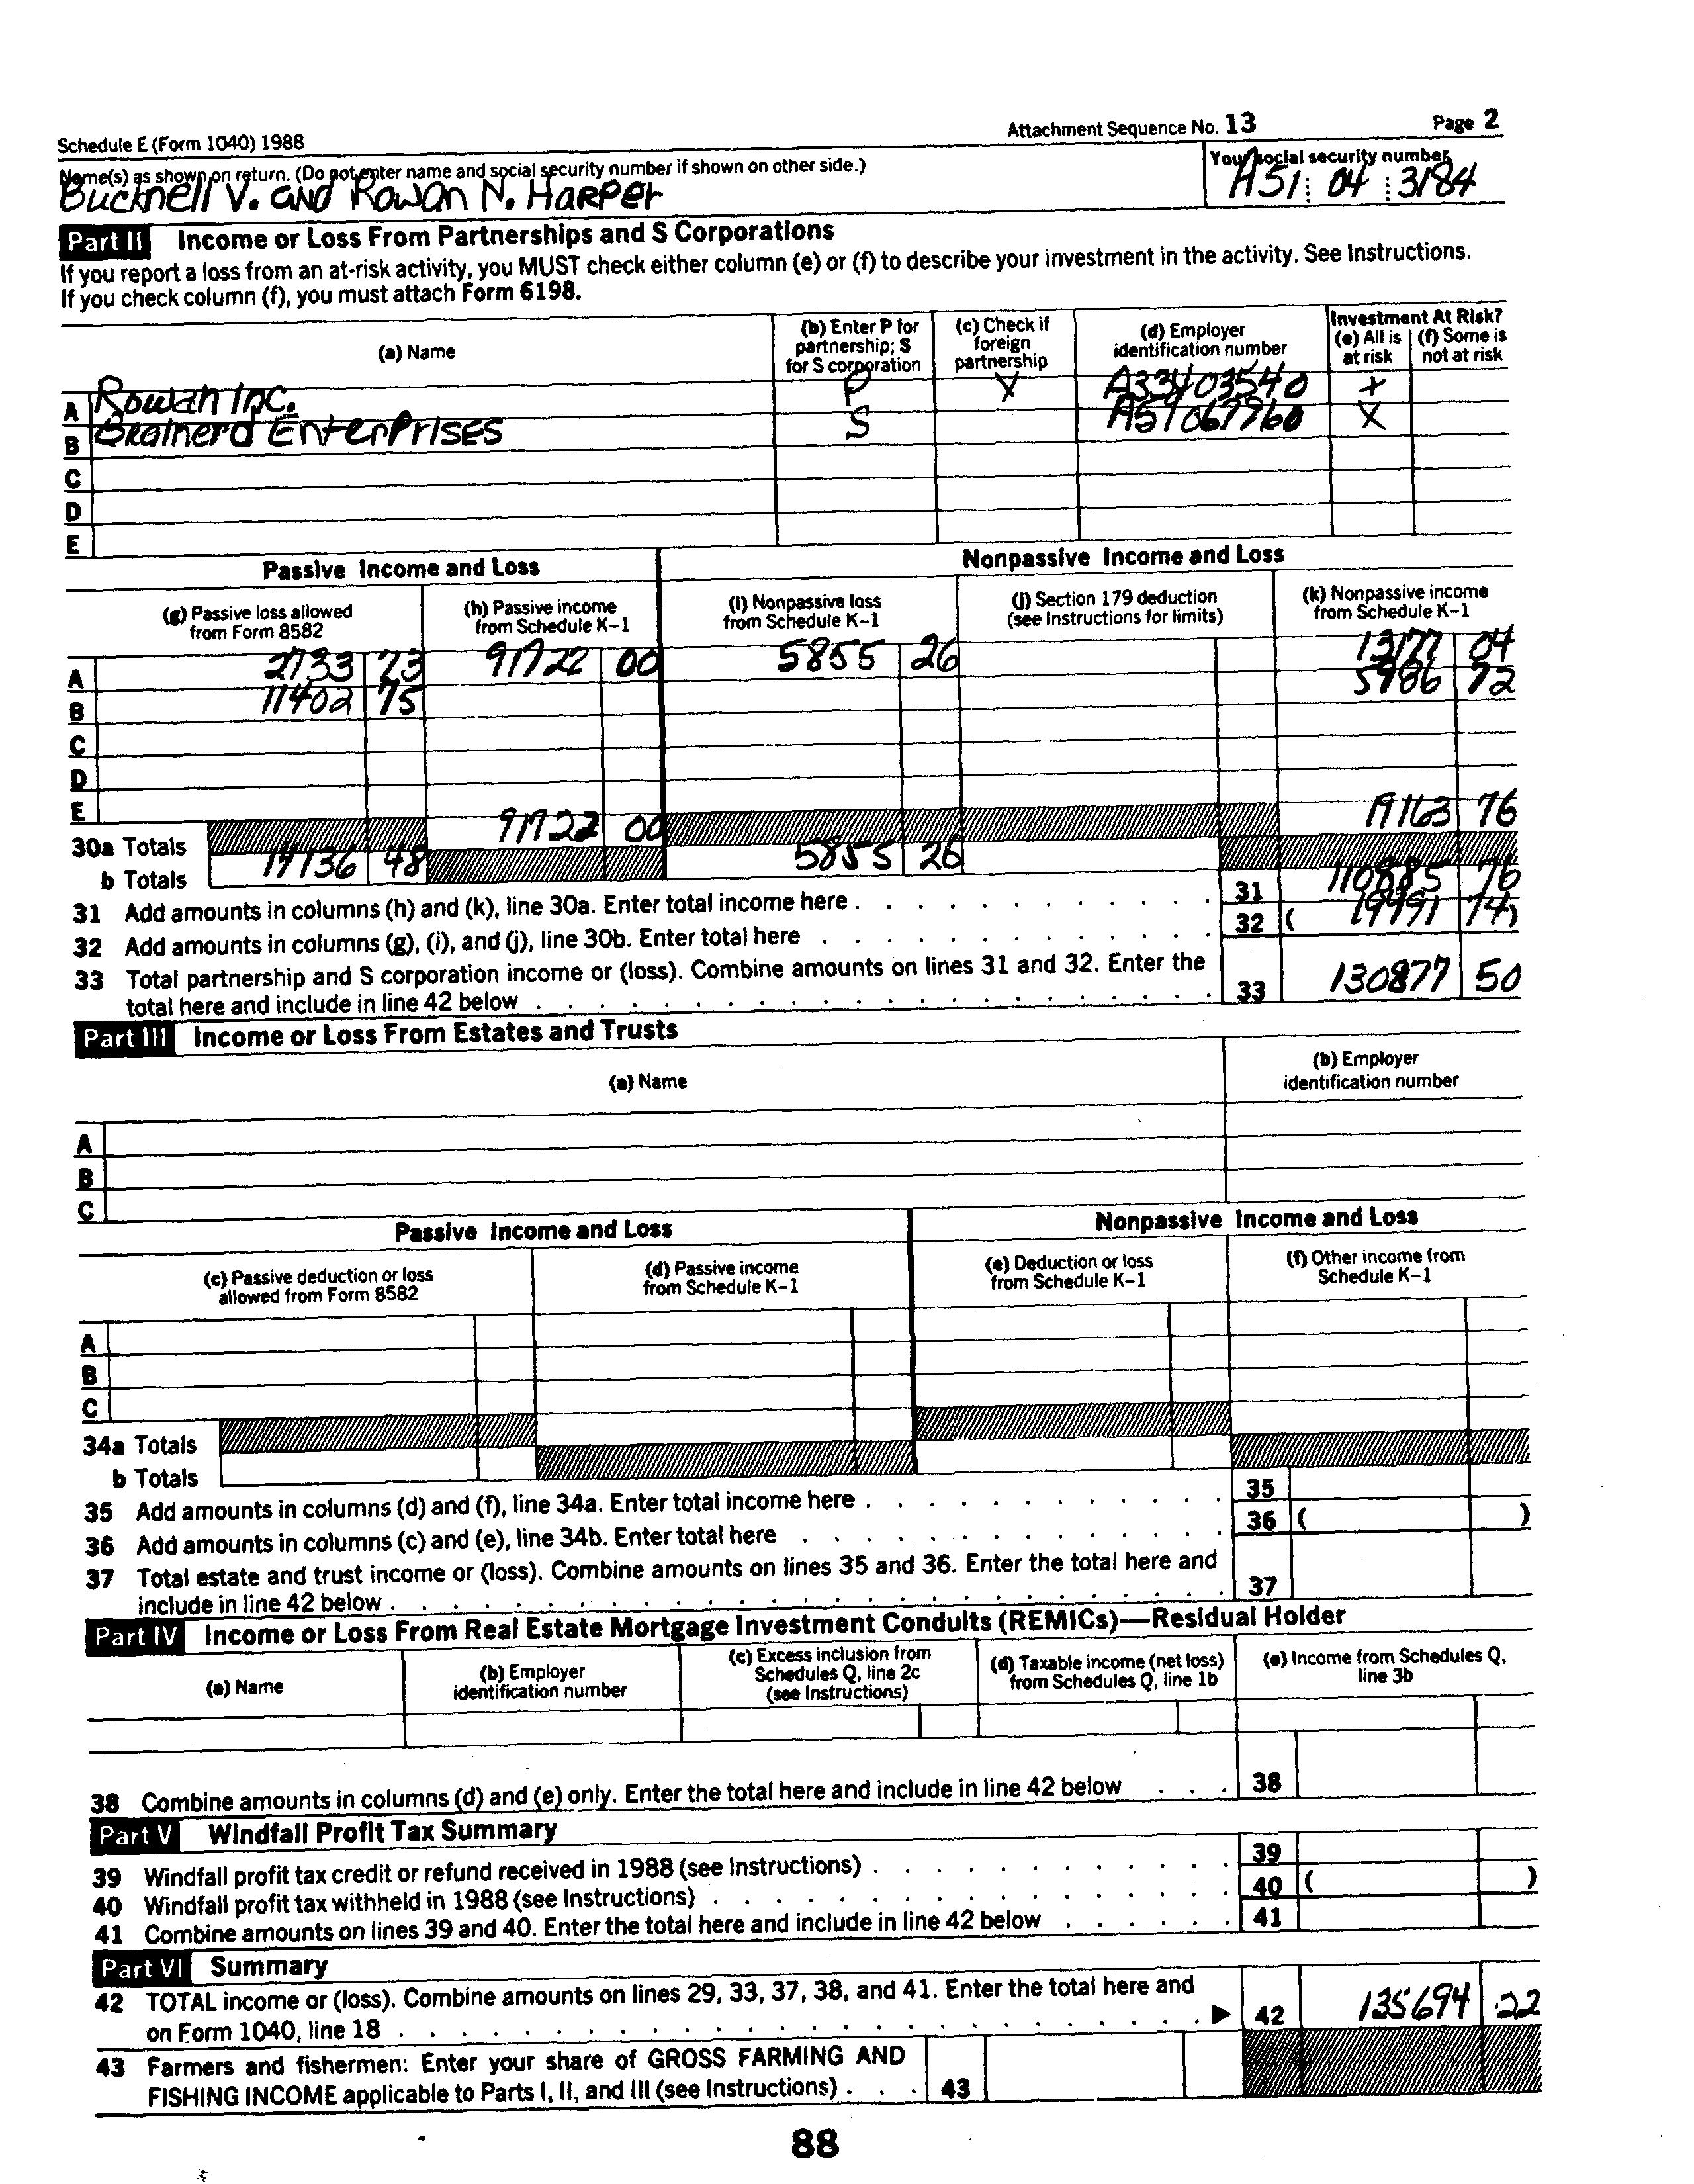 Schedule E (Form 1040) 1988 Attachment Sequence No. 13 Page 2
Name(s) as shown on return. (Do not enter name and social security number if shown on other side.) Your social security number
Bucknell V. and Rowan N. Harper A51 04 3184
Part II Income or Loss From Partnerships and S Corporations
If you report a loss from an at-risk activity, you MUST check either column (e) or (f) to describe your investment in the activity. See Instructions.
If you check column (f), you must attach Form 6198.
(a) Name (b) Enter P for partnership; S for S corporation (c) Check if foreign partnership (d) Employer identification number Investment At Risk? (e) All is at risk (f) Some is not at risk
A Rowan Inc. P X A33403540 X
B Brainerd Enterprises S A51067760 X
C
D
E
Passive Income and Loss Nonpassive Income and Loss
(g) Passive loss allowed from Form 8582 (h) Passive income from Schedule K-1 (i) Nonpassive loss from Schedule K-1 (j) Section 179 deduction (see Instructions for limits) (k) Nonpassive income from Schedule K-1
A 2733 73 91722 00 5855 26 13177 04
B 11402 75 5986 72
C
D
E
30a Totals 91722 00 19163 76
b Totals 14136 48 5855 26
31 Add amounts in columns (h) and (k), line 30a. Enter total income here 31 110885 76
32 Add amounts in columns (g), (i), and (j), line 30b. Enter total here 32 ( 19991 74)
33 Total partnership and S corporation income or (loss). Combine amounts on lines 31 and 32. Enter the
total here and include in line 42 below 33 130877 50
Part III Income or Loss From Estates and Trusts
(a) Name (b) Employer identification number
A
B
C
Passive Income and Loss Nonpassive Income and Loss
(c) Passive deduction or loss allowed from Form 8582 (d) Passive income from Schedule K-1 (e) Deduction or loss from Schedule K-1 (f) Other income from Schedule K-1
A
B
C
34a Totals
b Totals
35 Add amounts in columns (d) and (f), line 34a. Enter total income here 35
36 Add amounts in columns (c) and (e), line 34b. Enter total here 36 ( )
37 Total estate and trust income or (loss). Combine amounts on lines 35 and 36. Enter the total here and
include in line 42 below 37
Part IV Income or Loss From Real Estate Mortgage Investment Conduits (REMICs)—Residual Holder
(a) Name (b) Employer identification number (c) Excess inclusion from Schedules Q, line 2c (see Instructions) (d) Taxable income (net loss) from Schedules Q, line 1b (e) Income from Schedules Q, line 3b
38 Combine amounts in columns (d) and (e) only. Enter the total here and include in line 42 below 38
Part V Windfall Profit Tax Summary
39 Windfall profit tax credit or refund received in 1988 (see Instructions) 39
40 Windfall profit tax withheld in 1988 (see Instructions) 40 ( )
41 Combine amounts on lines 39 and 40. Enter the total here and include in line 42 below 41
Part VI Summary
42 TOTAL income or (loss). Combine amounts on lines 29, 33, 37, 38, and 41. Enter the total here and
on Form 1040, line 18 42 135694 22
43 Farmers and fishermen: Enter your share of GROSS FARMING AND
FISHING INCOME applicable to Parts I, II, and III (see Instructions) 43
88